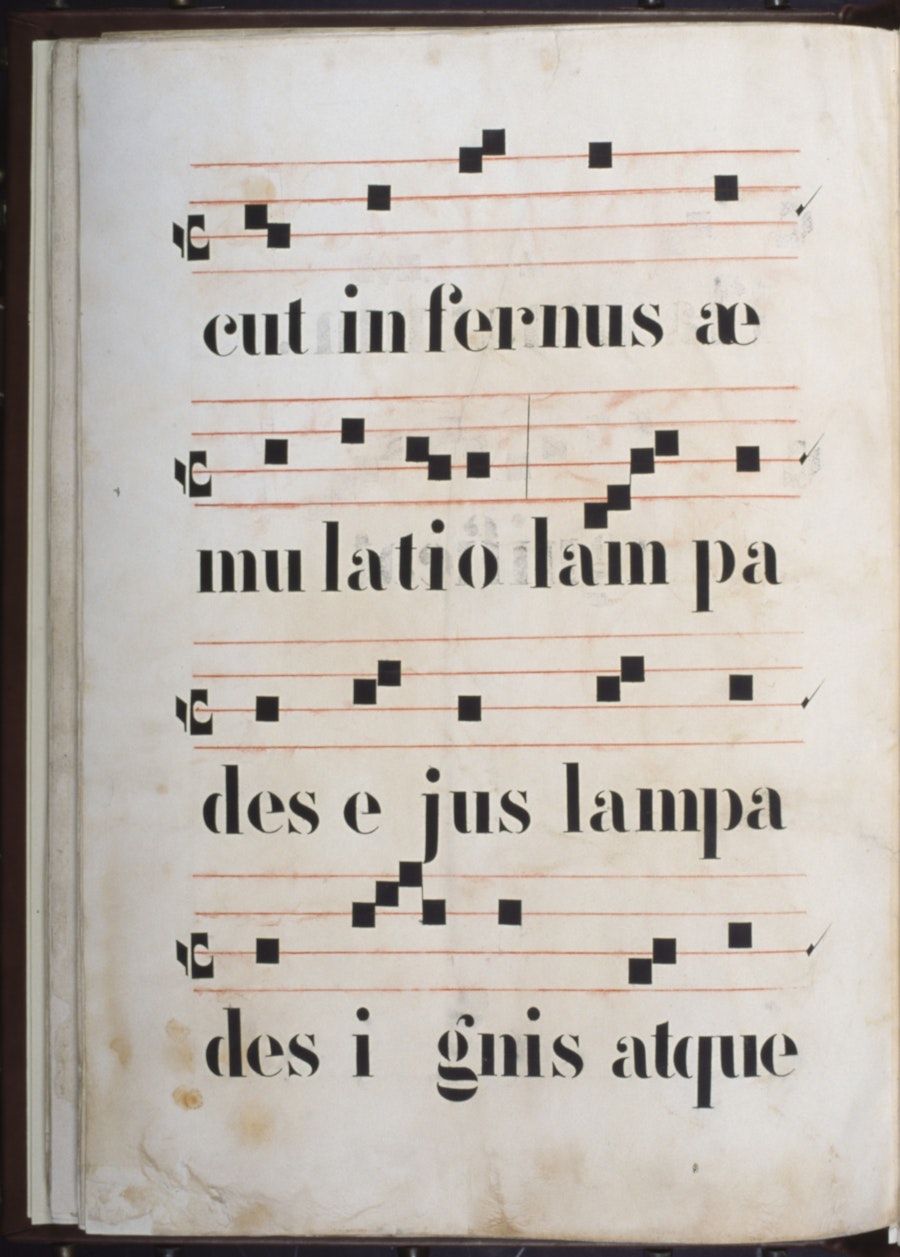 cut in fernus æ
mu latio lam pa
des e jus lampa
des i gnis atque